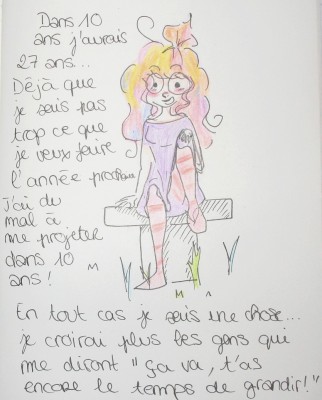 Dans 10
ans j'aurais
27 ans...
Déjà que
je sais pas
trop ce que
je veux faire
l'année prochaine
j'ai du
mal à
me projeter
dans 10
ans !
En tout cas je sais une chose...
je croirai plus les gens qui
me diront "ça va, t'as
encore le temps de grandir!"